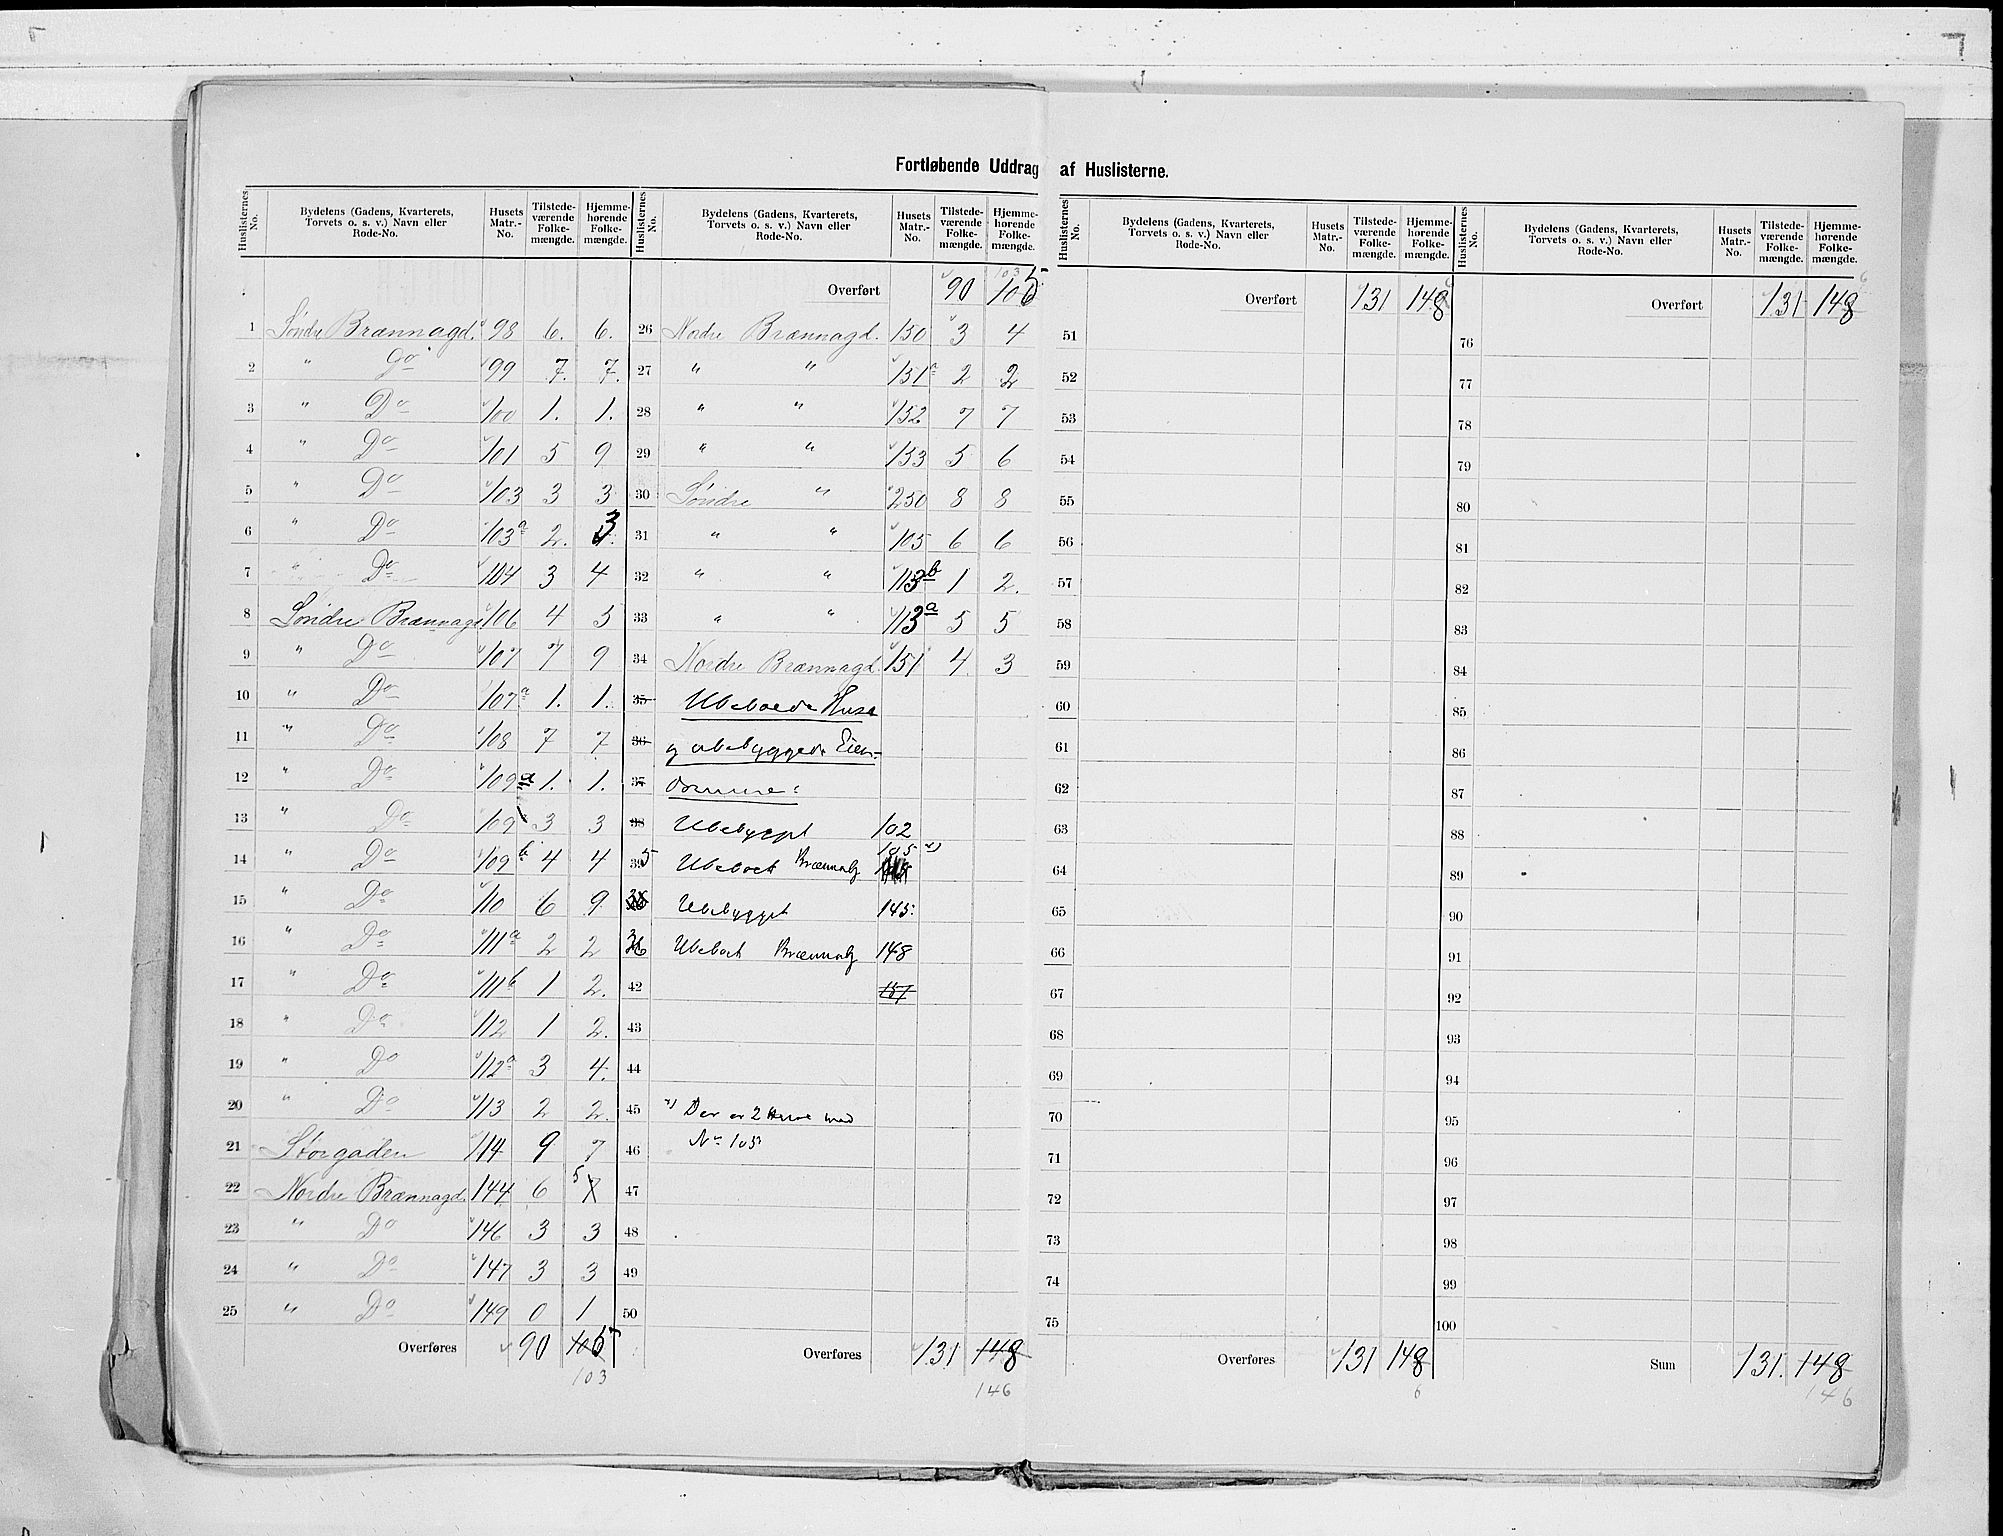 Fortløbende Uddrag af Huslisterne.
Huslisternes No. Bydelens (Gadens, Kvarterets, Torvets o. s. v.) Navn eller Rode-No. Husets Matr.-No. Tilstede-værende Folke-mængde. Hjemme-hørende Folke-mængde.
1 Søndre Brænnagd. 98 6. 6.
2 " Do 99 7. 7.
3 " Do 100 1. 1.
4 " Do 101 5 9
5 " Do 103 3 3
6 " Do 103a 2. 3
7 " Do 104 3 4
8 Søndre Brænnagd 106 4 5
9 " Do 107 7 9
10 " Do 107a 1. 1.
11 " Do 108 7 7
12 " Do 109a 1. 1.
13 " Do 109 3 3
14 " Do 109b 4 4
15 " Do 110 6 9
16 " Do 111a 2 2
17 " Do 111b 1 2.
18 " Do 112 1 2.
19 " Do 112a 3 4.
20 " Do 113 2 2.
21 Storgaden 114 9 7
22 Nordre Brænnagd. 144 6 5
23 " Do 146 3 3
24 " Do 147 3 3
25 " Do 149 0 1
Overføres 90 105
103
Huslisternes No. Bydelens (Gadens, Kvarterets, Torvets o. s. v.) Navn eller Rode-No. Husets Matr.-No. Tilstede-værende Folke-mængde. Hjemme-hørende Folke-mængde.
103
Overført 90 105
26 Nordre Brænnagd. 150 3 4
27 " " 151a 2 2
28 " " 152 7 7
29 " " 153 5 6
30 Søndre " 250 8 8
31 " " 105 6 6
32 " " 113b 1 2.
33 " " 113a 5 5
34 Nordre Brænnagd. 151 4 3
35 Ubeboede Huse
36 og ubebyggede Eien-
37 domme:
38 Ubebygget 102
35 Ubeboet Brænnag 105 x)
Ubebygget 145
36 Ubeboet Brænnag 148
42 151
43
44
45 x) Der er 2 Huse med
46 No 105
47
48
49
50
Overføres 131 148
146
Huslisternes No. Bydelens (Gadens, Kvarterets, Torvets o. s. v.) Navn eller Rode-No. Husets Matr.-No. Tilstede-værende Folke-mængde. Hjemme-hørende Folke-mængde.
6
Overført 131 148
51
52
53
54
55
56
57
58
59
60
61
62
63
64
65
66
67
68
69
70
71
72
73
74
75
Overføres 131 148
6
Huslisternes No. Bydelens (Gadens, Kvarterets, Torvets o. s. v.) Navn eller Rode-No. Husets Matr.-No. Tilstede-værende Folke-mængde. Hjemme-hørende Folke-mængde.
6
Overført 131 148
76
77
78
79
80
81
82
83
84
85
86
87
88
89
90
91
92
93
94
95
96
97
98
99
100
Sum 131. 148
146